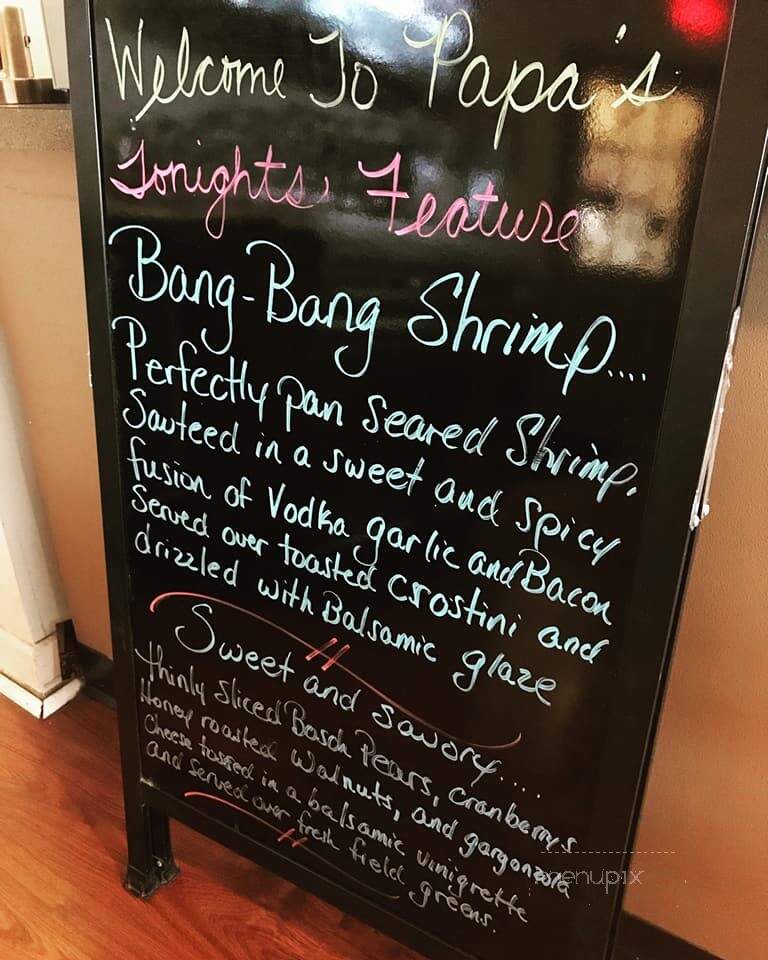 Welcome To Papa's
Tonights, Feature
Bang-Bang Shrimp....
Perfectly pan Seared Shrimp,
Sauteed in a sweet and Spicy
fusion of Vodka garlic and Bacon
Served over toasted crostini and
drizzled with Balsamic glaze
Sweet and savory....
thinly sliced Bosch Pears, cranberrys
Honey roasted walnuts, and gorgonzola
Cheese tossed in a balsamic vinigrette
and served over fresh field greens.
menupix